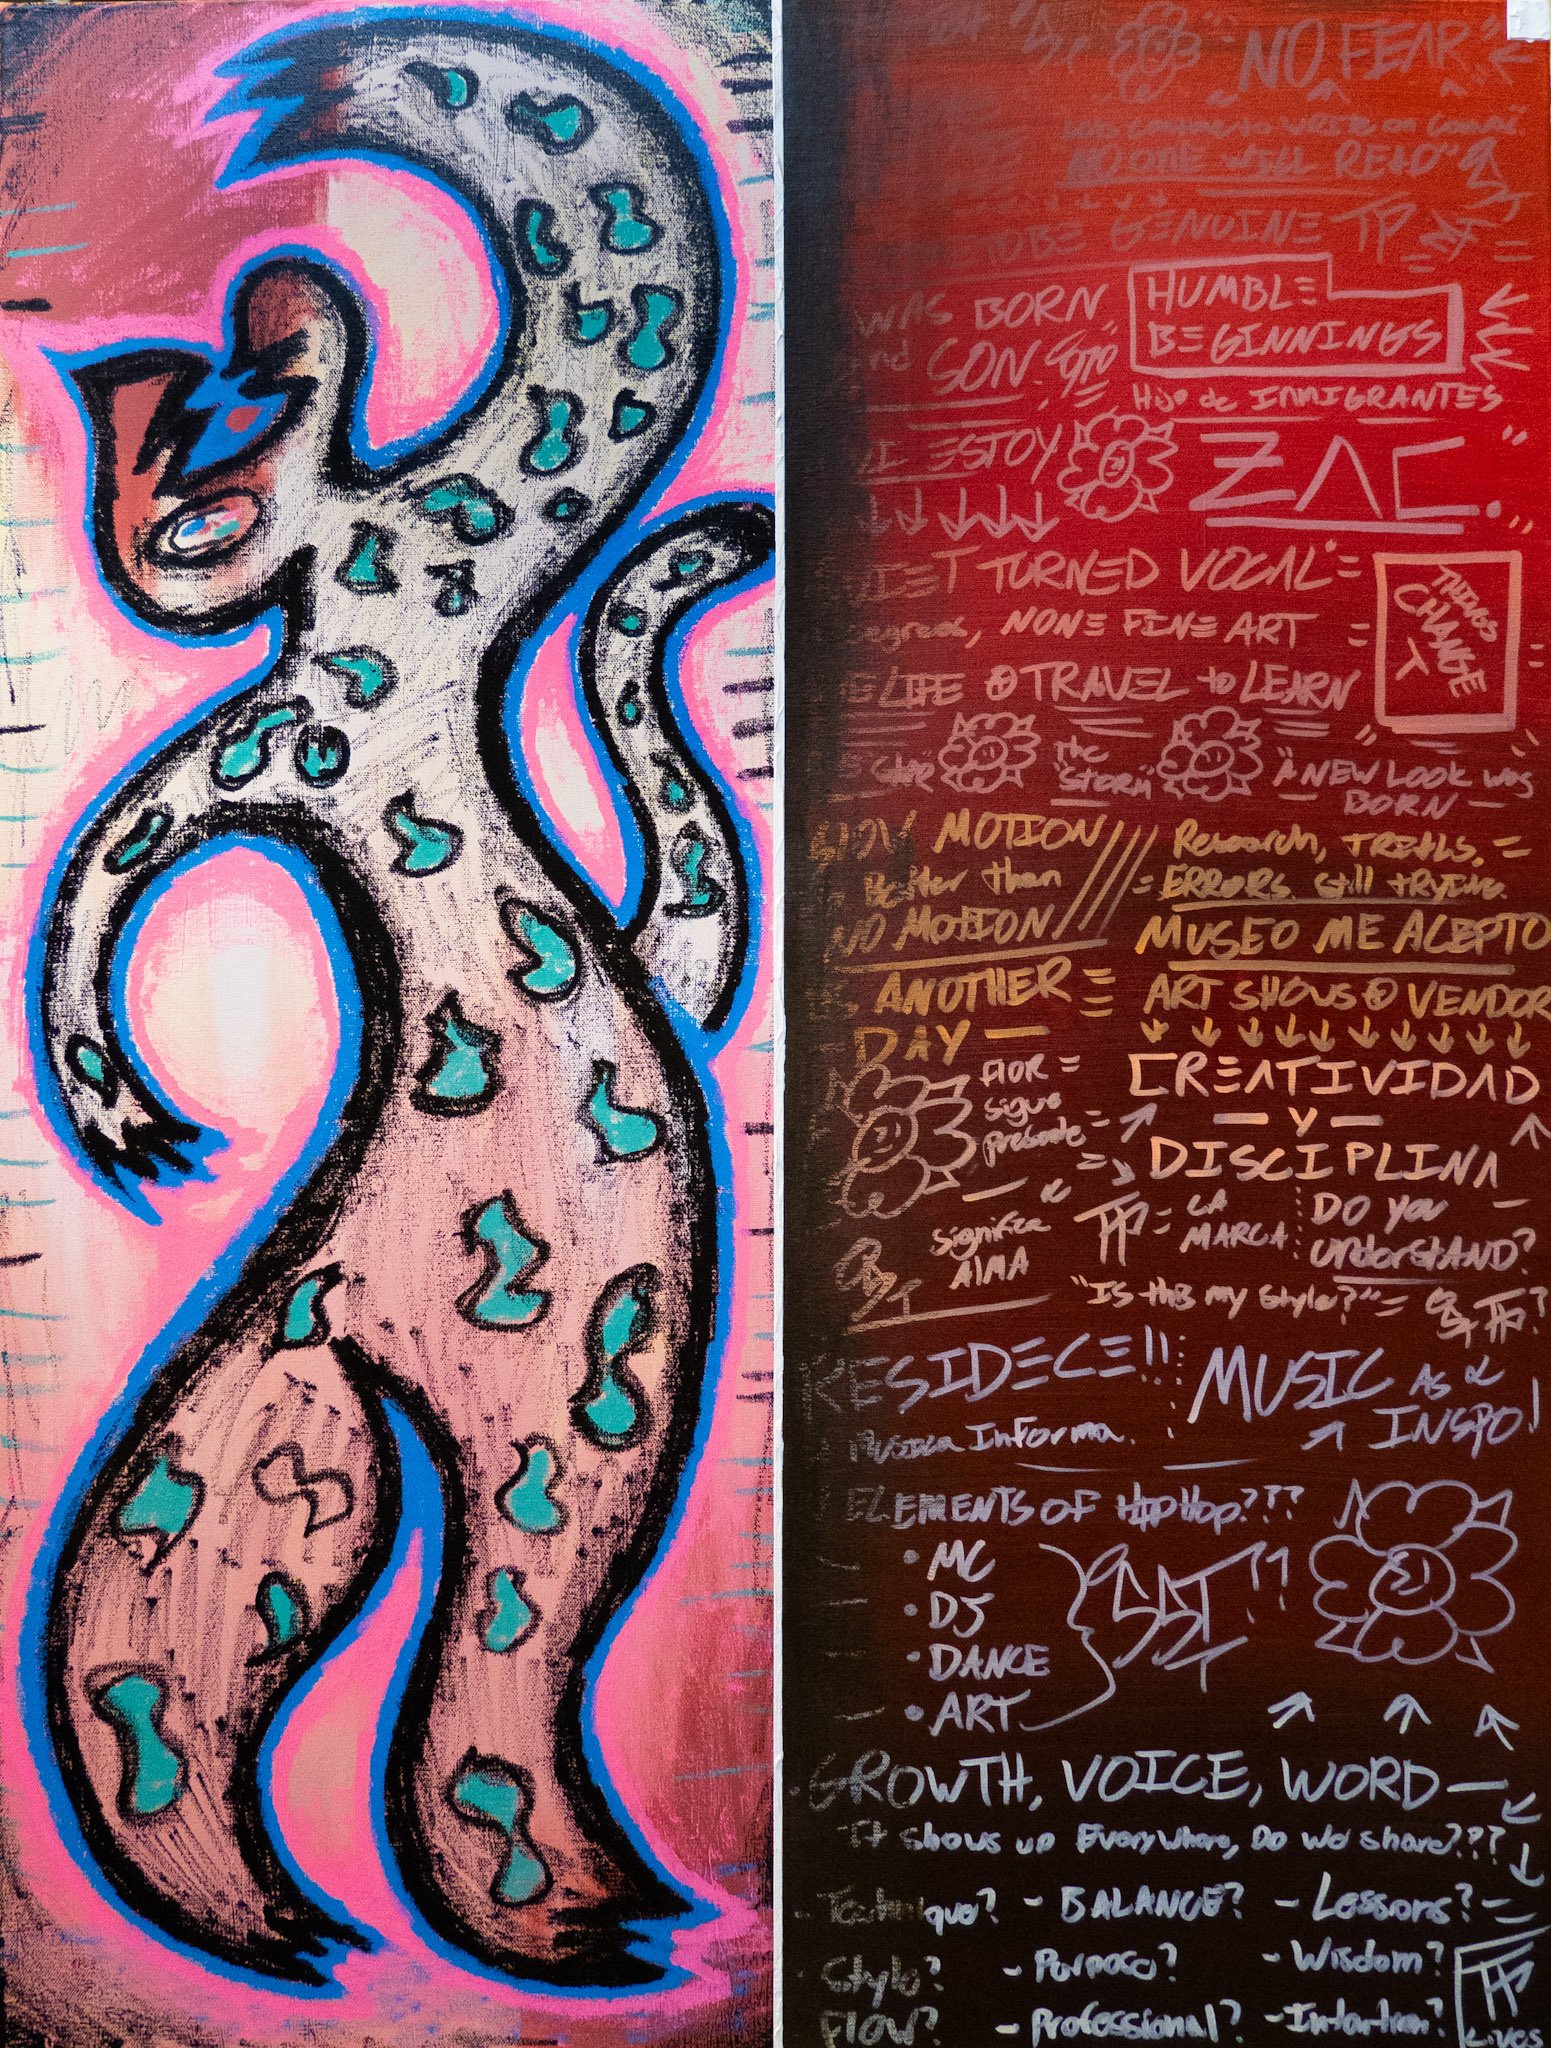 "NO FEAR"
to write on
NO ONE WILL READ"
TO BE GENUINE TP
WAS BORN
HUMBLE
BEGINNINGS
SON.
Hijo de INMIGRANTES
ESTOY
ZAC.
TURNED VOCAL"
THINGS
CHANGE
NONE FINE ART
LIFE TRAVEL to LEARN
the
"STORM"
"A NEW LOOK was
BORN
SLOW MOTION
Better than
NO MOTION
Research, TRIALS,
= ERRORS still trying.
MUSEO ME ACEPTO
ANOTHER
DAY —
ART SHOWS VENDOR
flor =
sigue
presente
CREATIVIDAD
— Y —
DISCIPLINA
significa
AlMA
TP = LA
MARCA
DO you
understAND?
"Is this my style?" =
RESIDECE!!
Musica Informa.
MUSIC AS
INSPO!
ELEMENTS OF HIPHOP???
• MC
• DJ
• DANCE
• ART
GROWTH, VOICE, WORD —
It shows up Everywhere, Do we share???
Technique? - BALANCE? - Lessons?
Style? - Purpose? - Wisdom?
Flow? - Professional? - Intention?
TP
Lives